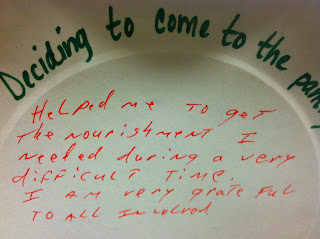 Deciding to come to the pan
Helped me to get
the nourishment I
needed during a very
difficult time.
I am very grateful
to all involved